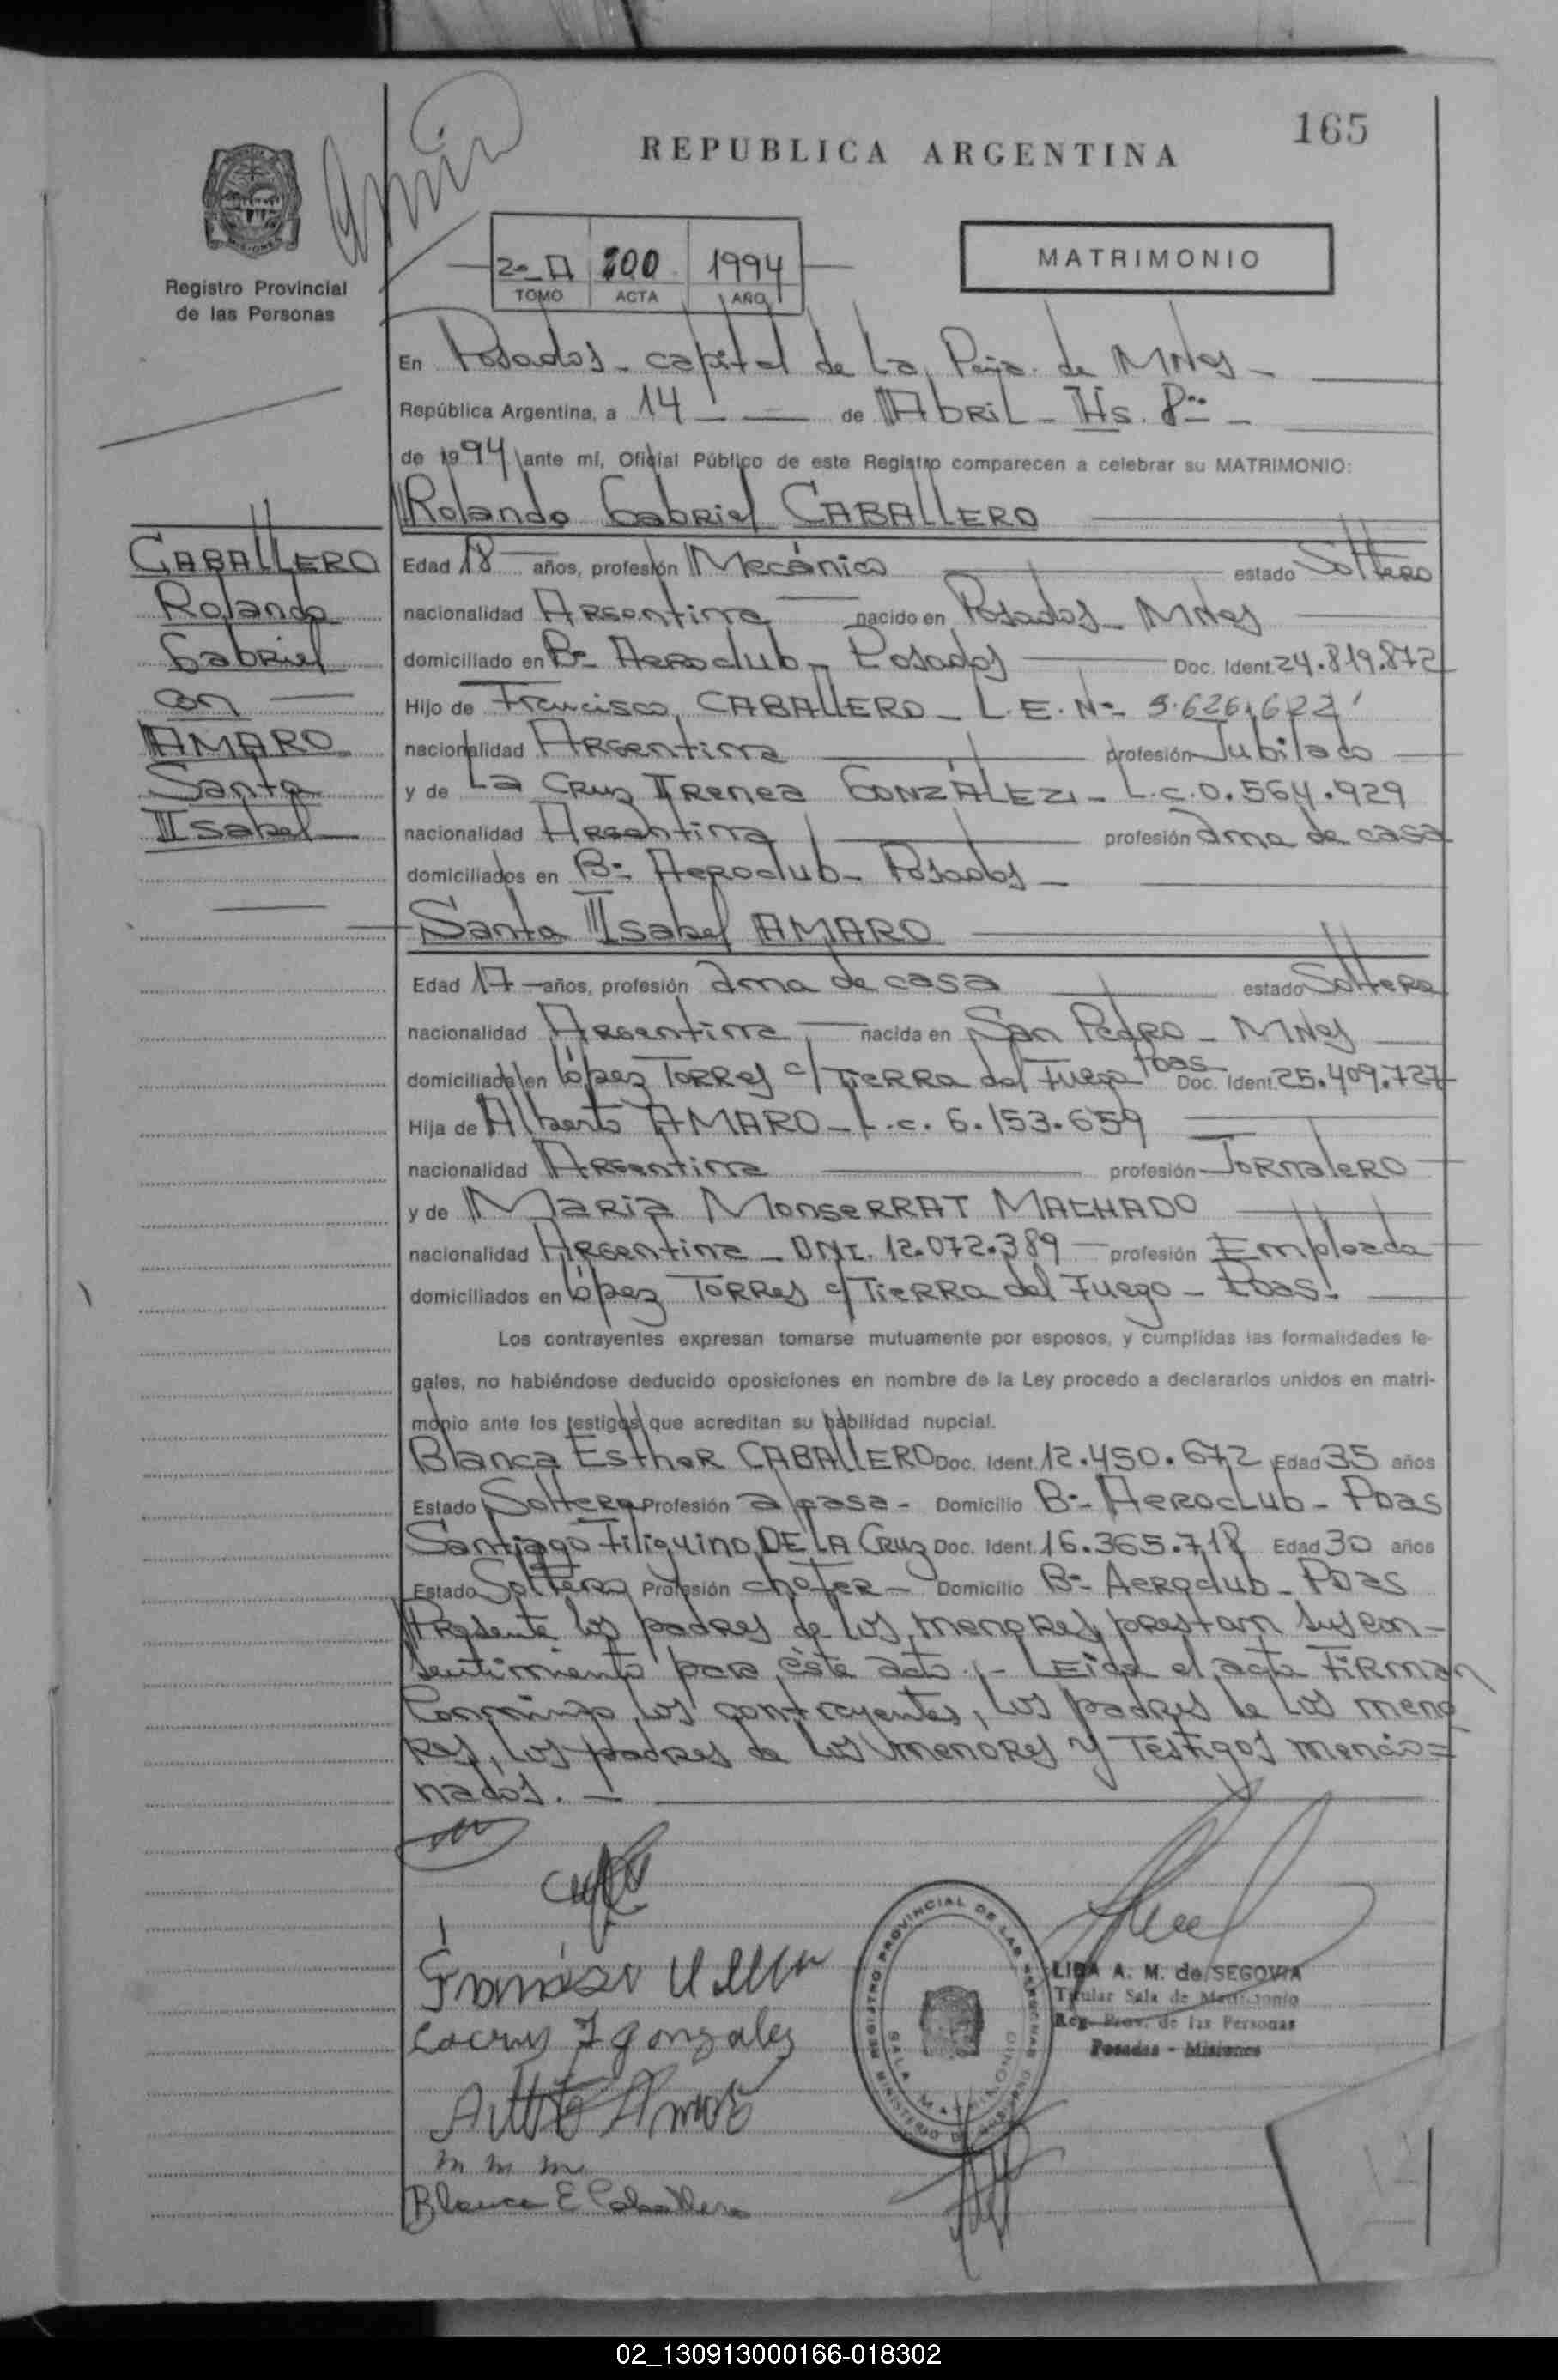 165
REPUBLICA ARGENTINA
Registro Provincial
de las Personas
MATRIMONIO
2º 200 1994
TOMO ACTA AÑO
En Posadas - capital de La Pcia. de Mnes -
República Argentina, a 14 - de Abril - Hs. 8:-
de 1994 ante mí, Oficial Público de este Registro comparecen a celebrar su MATRIMONIO:
Rolando Gabriel CABALLERO
CABALLERO
Rolando
Gabriel
con
AMARO
Santa
Isabel
Edad 18 años, profesión Mecánico estado Soltero
nacionalidad Argentina nacido en Posadas - Mnes
domiciliado en Bº Aeroclub - Posadas Doc. Ident. 24.819.872
Hijo de Francisco CABALLERO - L.E. Nº
nacionalidad Argentina profesión Jubilado
y de La Cruz Irenea GONZÁLEZ - L.c. 0.564.929
nacionalidad Argentina profesión ama de casa
domiciliados en Bº Aeroclub - Posadas -
Santa Isabel AMARO
Edad 17 - años, profesión ama de casa estado Soltera
nacionalidad Argentina nacida en San Pedro - Mnes
domiciliada en López Torres c/ Tierra del Fuego Pdas Doc. Ident. 25.409.727
Hija de Alberto AMARO - L.c. 6.153.659
nacionalidad Argentina profesión Jornalero
y de Maria Monserrat MACHADO
nacionalidad Argentina - DNI. 12.072.389 - profesión Empleada
domiciliados en López Torres c/ Tierra del Fuego - Pdas.
Los contrayentes expresan tomarse mutuamente por esposos, y cumplidas las formalidades le-
gales, no habiéndose deducido oposiciones en nombre de la Ley procedo a declararlos unidos en matri-
monio ante los testigos que acreditan su habilidad nupcial.
Blanca Esther CABALLERO Doc. Ident. 12.450.672 Edad 35 años
Estado Soltera Profesión a/casa - Domicilio Bº - Aeroclub - Pdas
Santiago Filiquino DE LA CRUZ Doc. Ident. 16.365.718 Edad 30 años
Estado Soltero Profesión chofer - Domicilio Bº Aeroclub - Pdas
Presente los padres de los menores prestam su con-
sentimiento para éste acto. - Leida el acta Firman
Conmigo, los contrayentes, los padres de los meno
res, los padres de los menores y Testigos mencio=
nados. -
Francisco
Lacruz I gonzalez
m m m
Blanca E Caballero
REGISTRO PROVINCIAL DE LAS PERSONAS
SALA MATRIMONIO
MINISTERIO DE GOBIERNO
LIDA A. M. de SEGOVIA
Titular Sala de Matrimonio
Reg. Prov. de las Personas
Posadas - Misiones
02_130913000166-018302